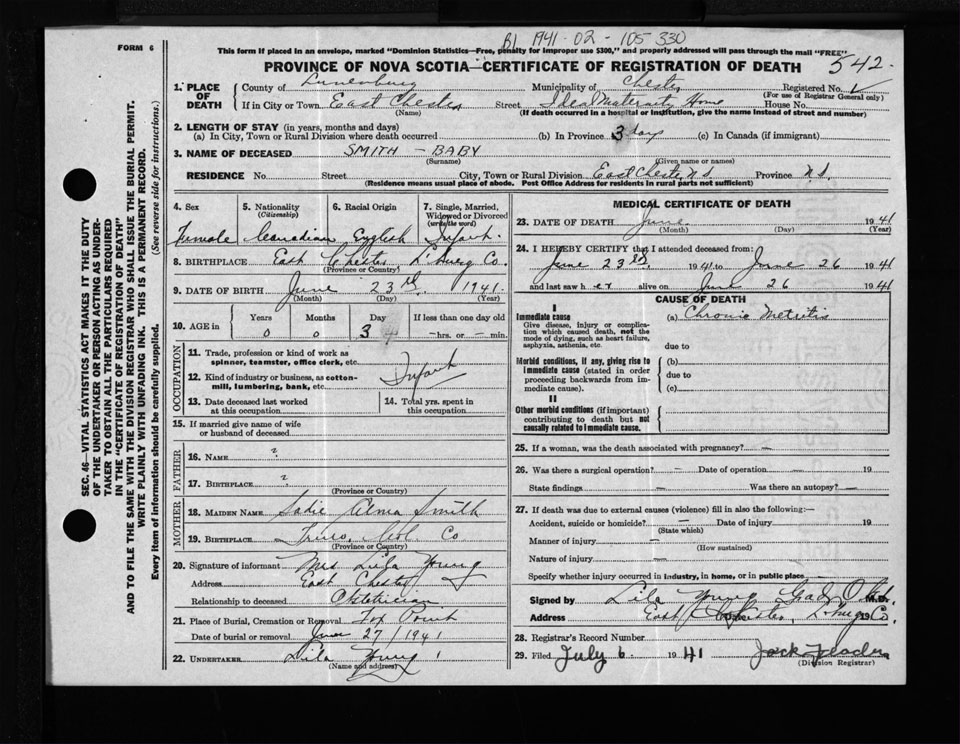 B1 1941-02-105330
FORM 6
This form if placed in an envelope, marked "Dominion Statistics—Free, penalty for improper use $300," and properly addressed will pass through the mail "FREE"
PROVINCE OF NOVA SCOTIA—CERTIFICATE OF REGISTRATION OF DEATH 542
1. PLACE OF DEATH
County of Lunenburg Municipality of Chester Registered No.
(For use of Registrar General only)
If in City or Town East Chester Street Ideal Maternity Home House No.
(Name) (If death occurred in a hospital or institution, give the name instead of street and number)
2. LENGTH OF STAY (in years, months and days)
(a) In City, Town or Rural Division where death occurred (b) In Province 3 days (c) In Canada (if immigrant)
3. NAME OF DECEASED SMITH — BABY
(Surname) (Given name or names)
RESIDENCE No. Street City, Town or Rural Division East Chester N.S. Province N.S.
(Residence means usual place of abode. Post Office Address for residents in rural parts not sufficient)
4. Sex 5. Nationality (Citizenship) 6. Racial Origin 7. Single, Married, Widowed or Divorced (write the word)
Female Canadian English Infant
8. BIRTHPLACE East Chester L'burg Co.
(Province or Country)
9. DATE OF BIRTH June 23rd 1941
(Month) (Day) (Year)
10. AGE in Years Months Day If less than one day old
0 0 3 — hrs. or — min.
OCCUPATION
11. Trade, profession or kind of work as spinner, teamster, office clerk, etc.
12. Kind of industry or business, as cotton-mill, lumbering, bank, etc. Infant
13. Date deceased last worked at this occupation
14. Total yrs. spent in this occupation
15. If married give name of wife or husband of deceased
FATHER
16. NAME ?
17. BIRTHPLACE ?
(Province or Country)
MOTHER
18. MAIDEN NAME Sadie Alma Smith
19. BIRTHPLACE Truro, Col. Co
(Province or Country)
20. Signature of informant Mrs Lila Young
Address East Chester
Relationship to deceased Obstetrician
21. Place of Burial, Cremation or Removal Fox Point
Date of burial or removal June 27/1941
22. UNDERTAKER Lila Young
(Name and address)
MEDICAL CERTIFICATE OF DEATH
23. DATE OF DEATH June 1941
(Month) (Day) (Year)
24. I HEREBY CERTIFY that I attended deceased from:
June 23rd 1941 to June 26 1941
and last saw her alive on June 26 1941
CAUSE OF DEATH
I
Immediate cause (a) Chronic Metritis
Give disease, injury or complication which caused death, not the mode of dying, such as heart failure, asphyxia, asthenia, etc.
due to
Morbid conditions, if any, giving rise to immediate cause (stated in order proceeding backwards from immediate cause).
(b)
due to
(c)
II
Other morbid conditions (if important) contributing to death but not causally related to immediate cause.
25. If a woman, was the death associated with pregnancy? —
26. Was there a surgical operation? — Date of operation — 19
State findings — Was there an autopsy? —
27. If death was due to external causes (violence) fill in also the following:—
Accident, suicide or homicide? — Date of injury 19
(State which)
Manner of injury —
(How sustained)
Nature of injury —
Specify whether injury occurred in industry, in home, or in public place
Signed by Lila Young M.D.
Address East Chester, 19
28. Registrar's Record Number
29. Filed July 6 1941 Jock
(Division Registrar)
SEC. 46—VITAL STATISTICS ACT MAKES IT THE DUTY
OF THE UNDERTAKER OR PERSON ACTING AS UNDER-
TAKER TO OBTAIN ALL THE PARTICULARS REQUIRED
IN THE "CERTIFICATE OF REGISTRATION OF DEATH"
AND TO FILE THE SAME WITH THE DIVISION REGISTRAR WHO SHALL ISSUE THE BURIAL PERMIT.
WRITE PLAINLY WITH UNFADING INK. THIS IS A PERMANENT RECORD.
Every item of information should be carefully supplied. (See reverse side for instructions.)